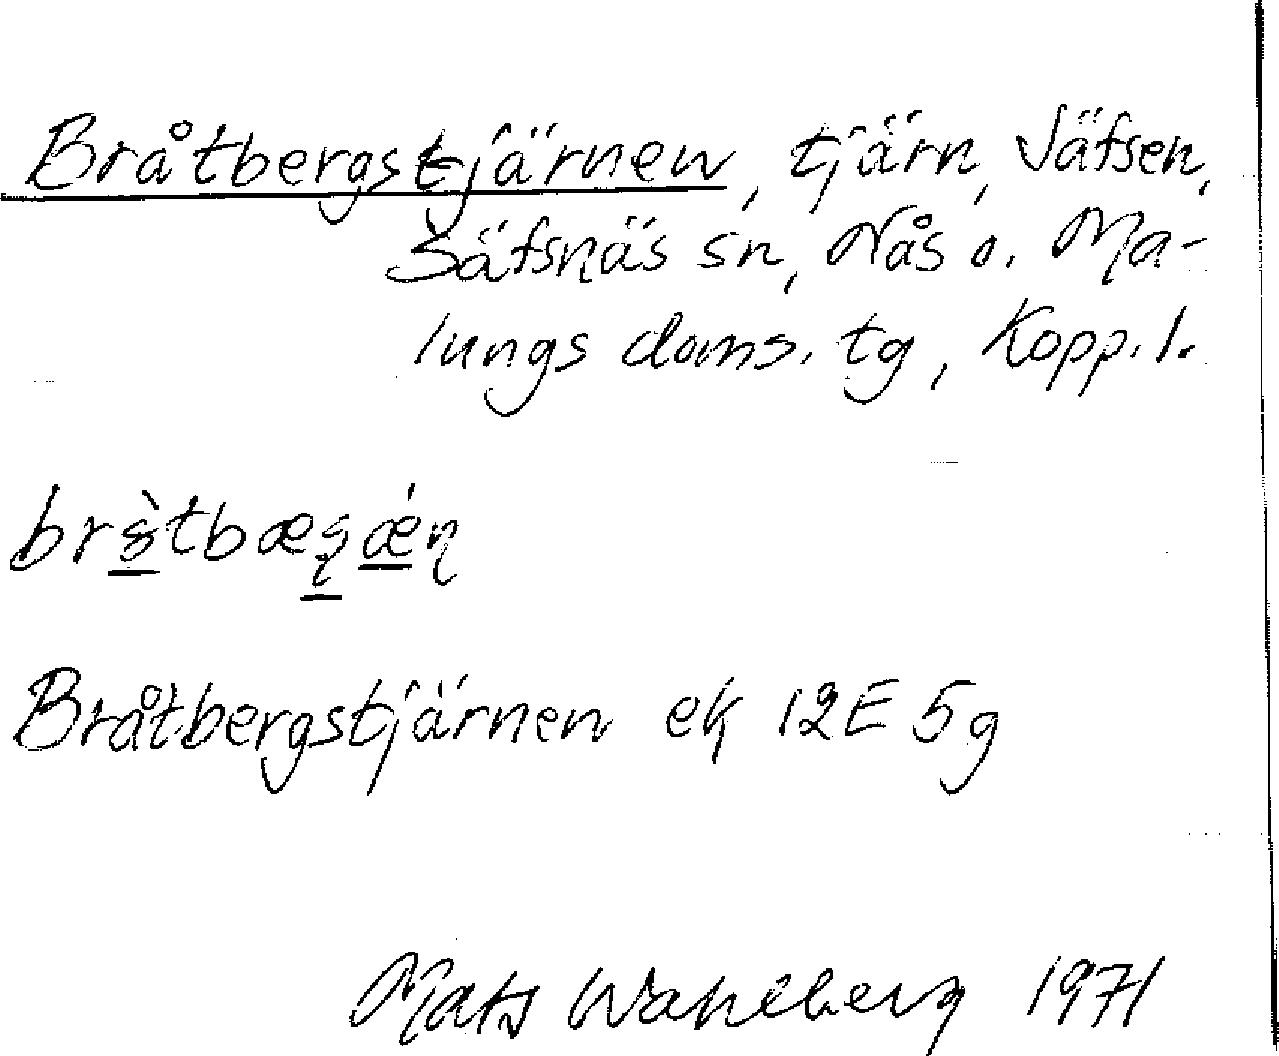 Bråtbergstjärnen, tjärn, Säfsen,
Säfsnäs sn, Nås o. Ma-
lungs doms. tg, Kopp. l.
Bråtbergstjärnen ek 12E 5g
Mats Wahlberg 1971